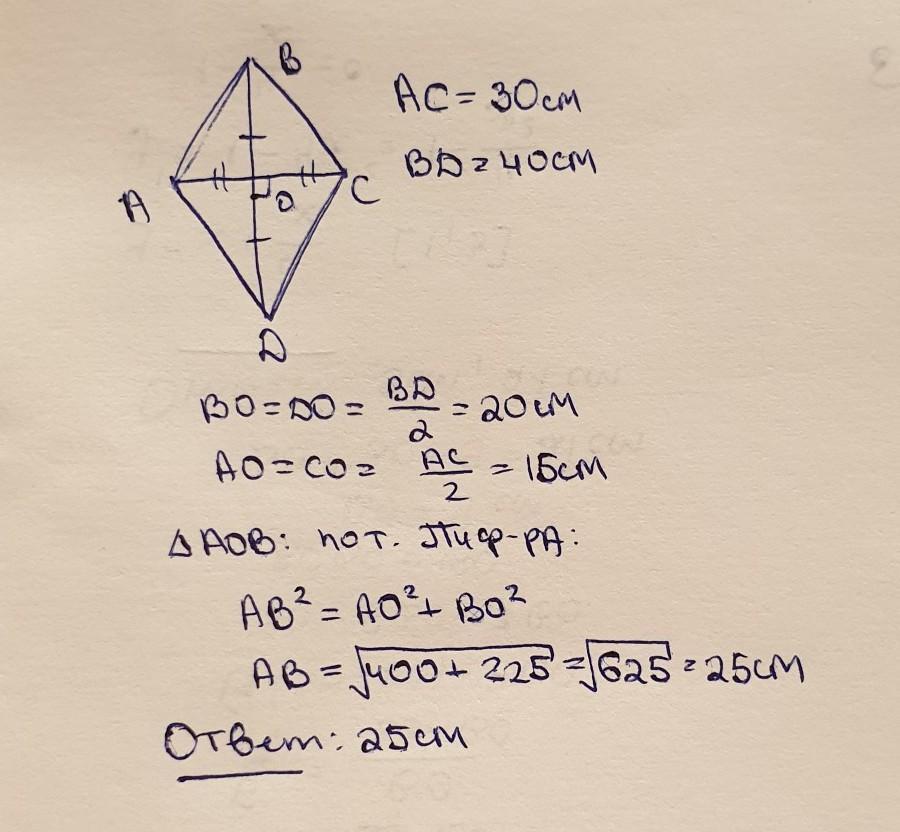 B
AC = 30см
BD = 40см
A
O
C
D
BO = DO = BD/2 = 20см
AO = CO = AC/2 = 15см
Δ AOB: по т. Пиф-ра:
AB² = AO² + BO²
AB = √400 + 225 = √625 = 25см
Ответ: 25см